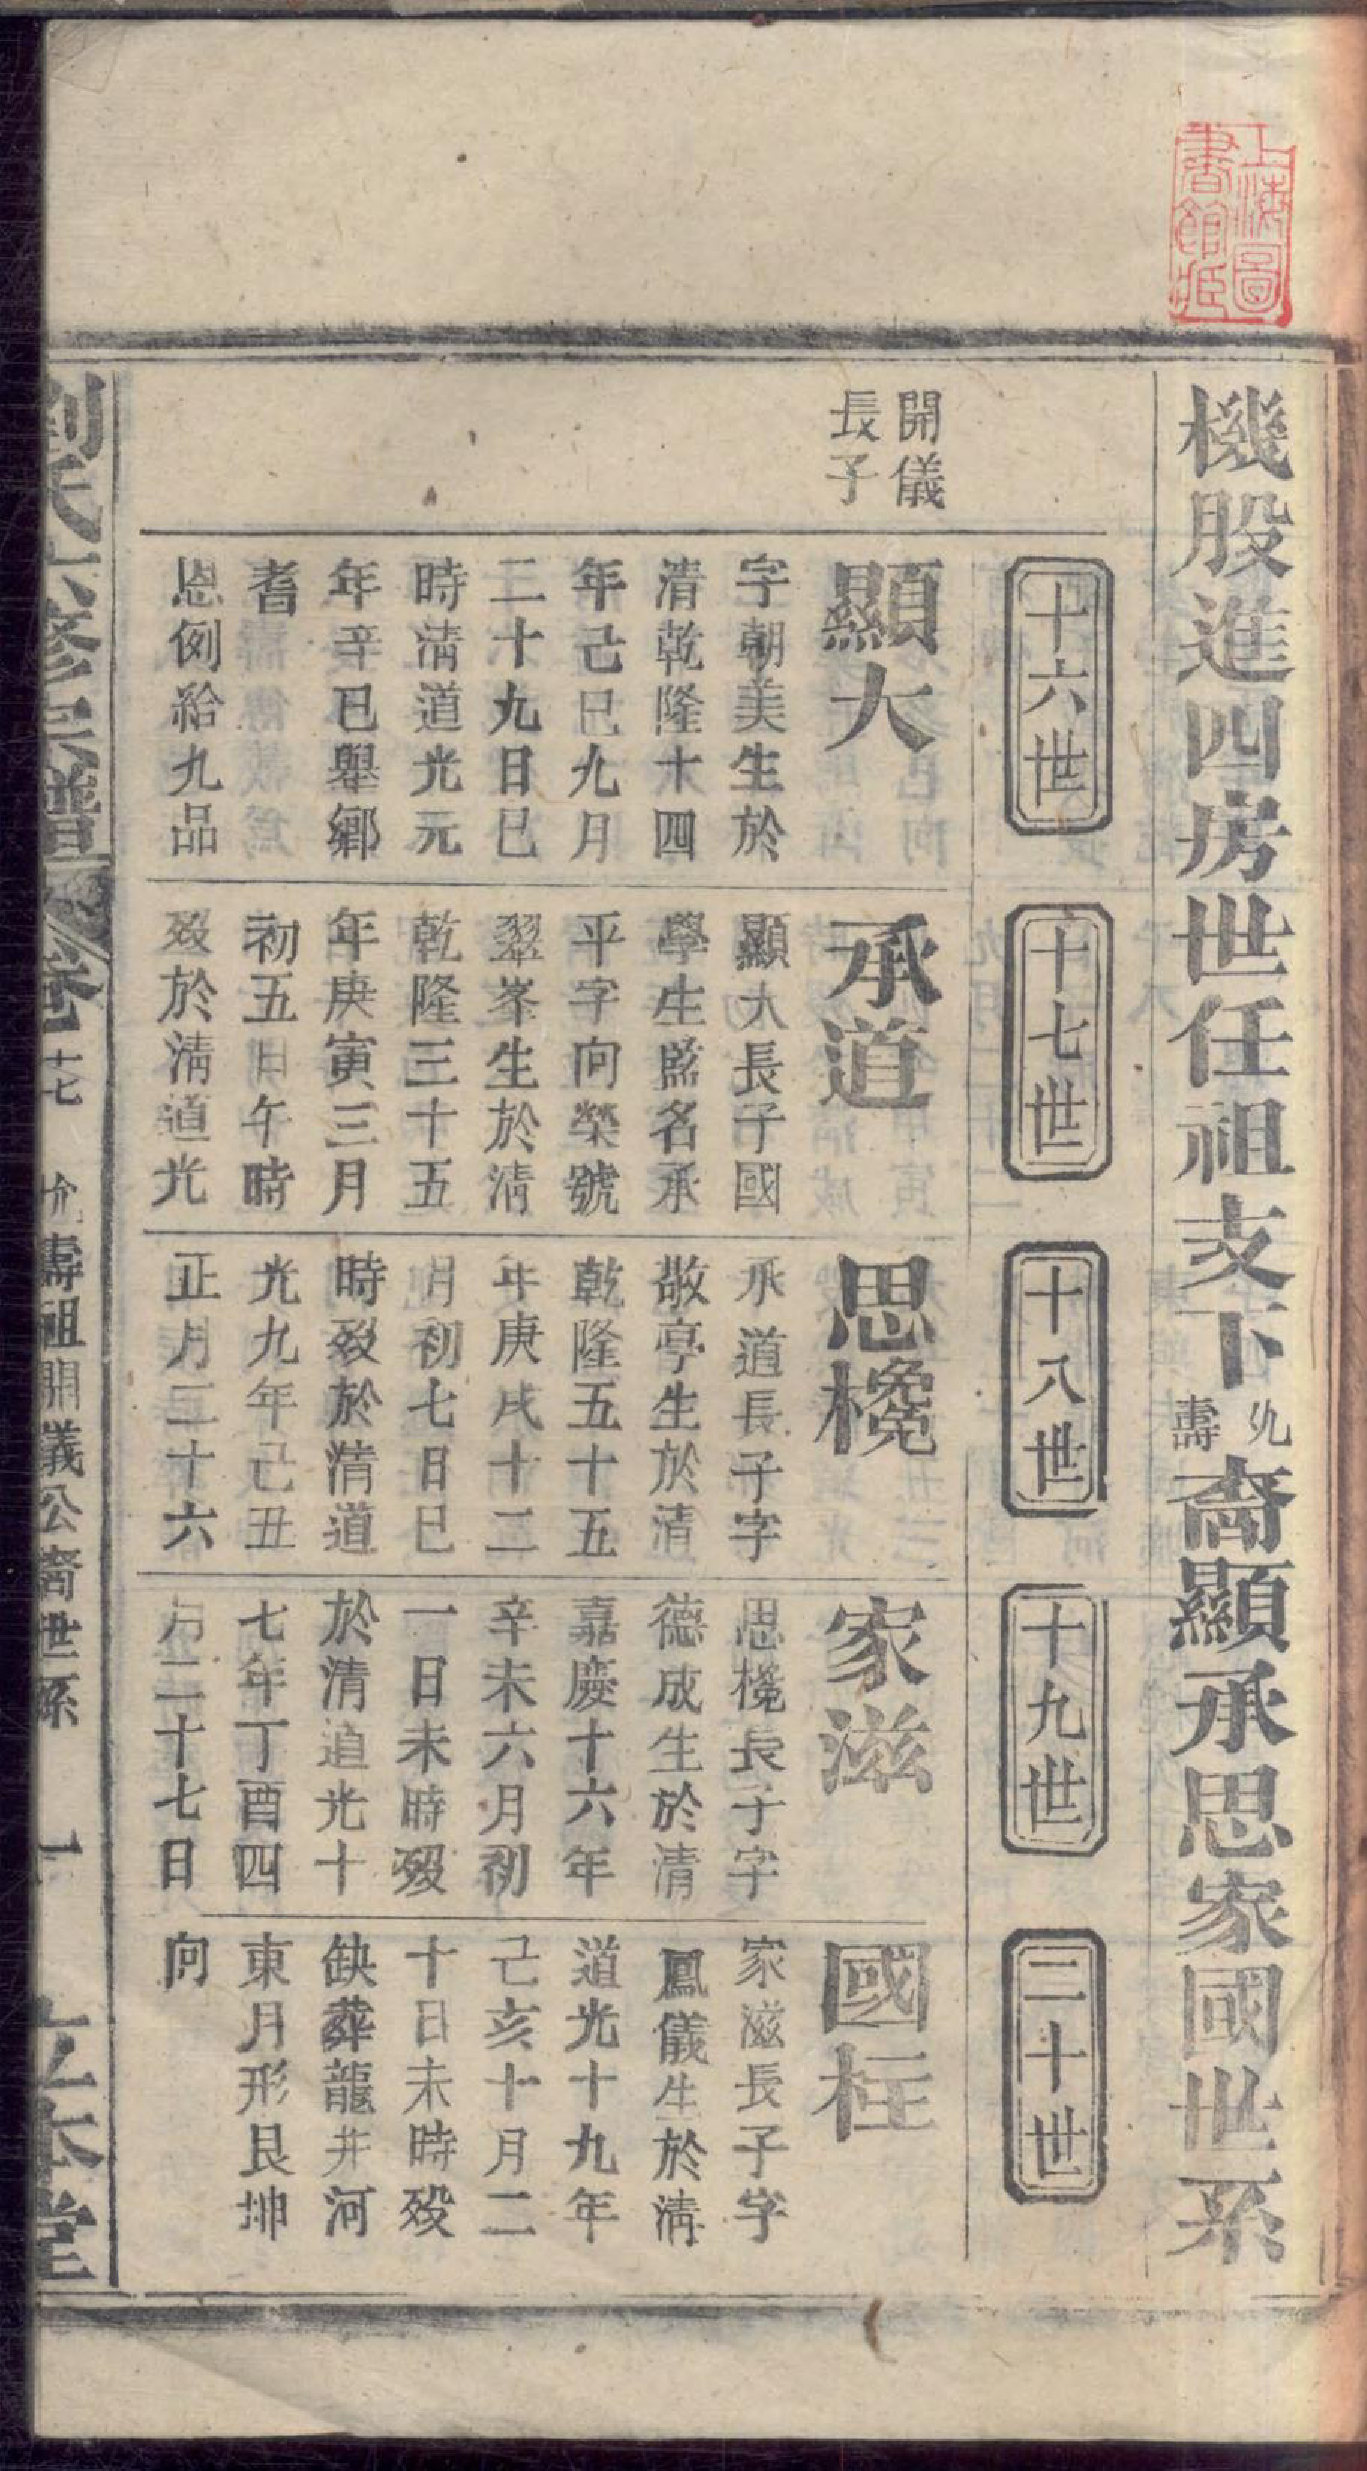 上海圖
書館藏
機股進四房世任祖支下允壽裔顯承思家國世系
十六世
十七世
十八世
十九世
二十世
開儀
長子
顯大
字朝美生於
清乾隆十四
年己巳九月
二十九日巳
時清道光元
年辛巳舉鄉
耆
恩例給九品
承道
顯大長子國
學生監名承
平字向榮號
翠峯生於清
乾隆三十五
年庚寅三月
初五日午時
歿於清道光
思欃
承道長子字
敬亭生於清
乾隆五十五
年庚戌十二
月初七日巳
時歿於清道
光九年己丑
正月二十六
家滋
思欃長子字
德成生於清
嘉慶十六年
辛未六月初
一日未時歿
於清道光十
七年丁酉四
月二十七日
國柱
家滋長子字
鳳儀生於清
道光十九年
己亥十月二
十日未時歿
缺葬龍井河
東月形艮坤
向
劉氏六修宗譜
卷十七
允壽祖開儀公裔世系
一
立本堂